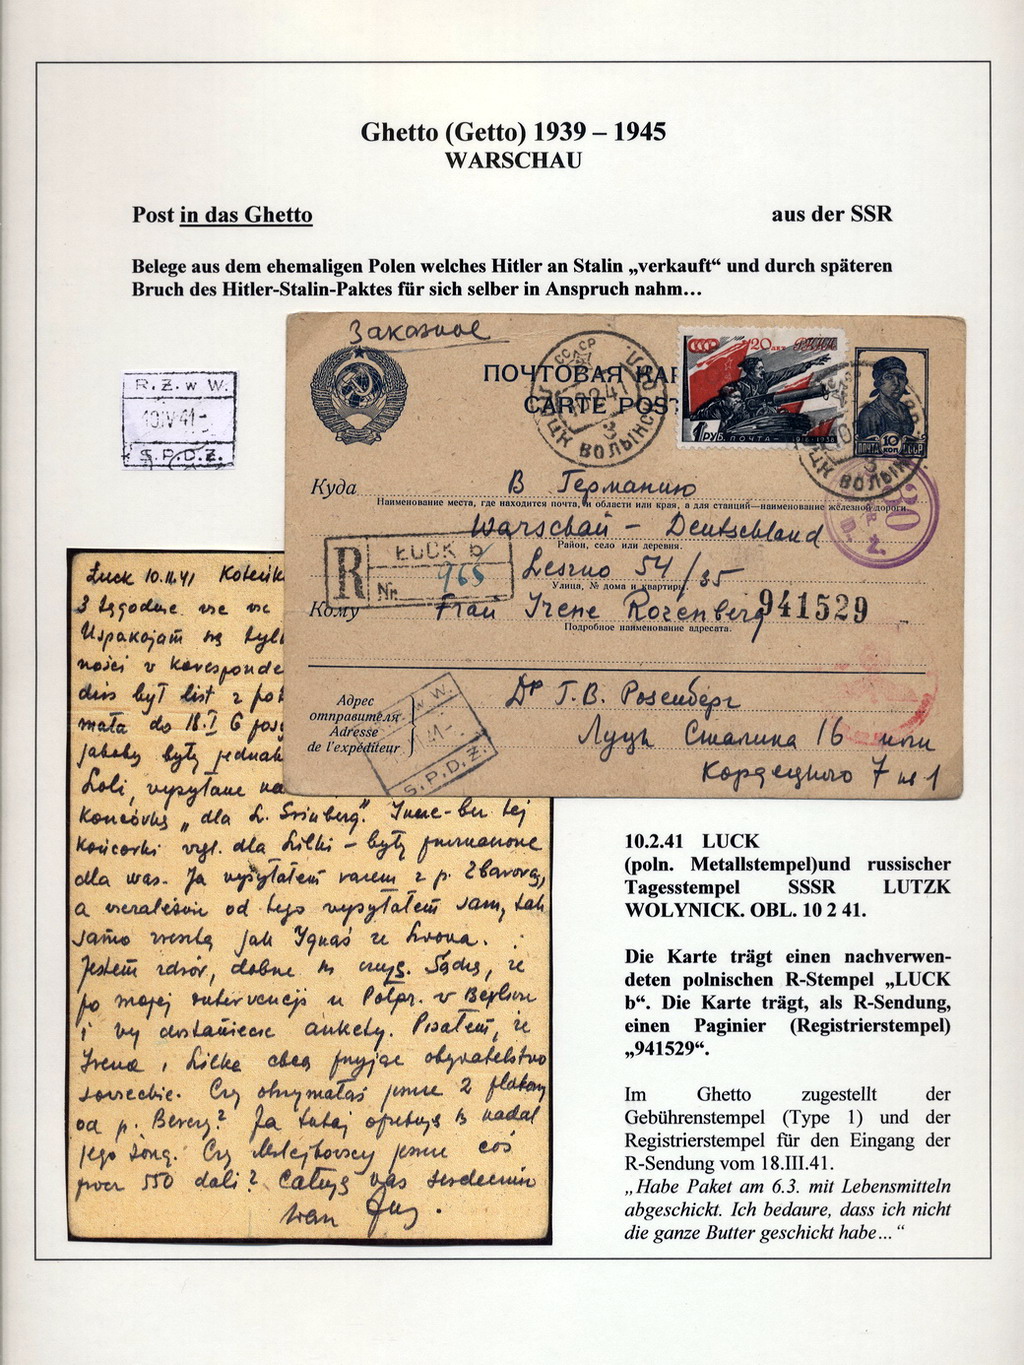 Ghetto (Getto) 1939 – 1945
WARSCHAU
Post in das Ghetto
aus der SSR
Belege aus dem ehemaligen Polen welches Hitler an Stalin „verkauft“ und durch späteren
Bruch des Hitler-Stalin-Paktes für sich selber in Anspruch nahm…
R.Ż.w W.
10 IV 41
S.P.D.Ż.
Заказное
ПОЧТОВАЯ КАР
CARTE POST
СССР
ЛУЦК ВОЛЫНСК
20 лет РККА
1 РУБ. ПОЧТА 1918-1938
10 КОП.
ПОЧТА СССР
30
Куда В Германию
Наименование места, где находится почта, и области или края, а для станций—наименование железной дороги.
Warschau - Deutschland
Район, село или деревня.
R ŁUCK b
Nr. 965
Leszno 54/35
Улица, № дома и квартиры.
Кому Frau Irene Rozenberg
941529
Подробное наименование адресата.
Адрес
отправителя
Adresse
de l'expéditeur
Др Г.В. Розенберг
Луцк Сталина 16 или
Кордецкого 7 м 1
w W.
S.P.D.Ż.
Łuck 10.II.41
3 tygodnie
Uspakajam się tyl
ności w koresponde
dziś był list z
mała do 18.I 6
jakoby były jednak
Loli, wysyłane na
końcówką „dla L.
końcówki wzgl. dla Lilki – były
dla was. Ja wysyłałem razem z p.
a niezależnie od tego wysyłałem sam, tak
samo zresztą jak Ignaś ze Lwowa.
Jestem zdrów, dobrze Sądzę, że
po mojej interwencji u w Berlinie
i wy dostaniecie ankiety. Pisałem, że
Irena i Lilka chcą przyjąć obywatelstwo
sowieckie. Czy otrzymałaś jeszcze 2
od p. Ja tutaj nadal
jego żonę. Czy jeszcze coś
poza 550 dali? Całuję was serdecznie
10.2.41 LUCK
(poln. Metallstempel)und russischer
Tagesstempel SSSR LUTZK
WOLYNICK. OBL. 10 2 41.
Die Karte trägt einen nachverwen-
deten polnischen R-Stempel „LUCK
b“. Die Karte trägt, als R-Sendung,
einen Paginier (Registrierstempel)
„941529“.
Im Ghetto zugestellt der
Gebührenstempel (Type 1) und der
Registrierstempel für den Eingang der
R-Sendung vom 18.III.41.
„Habe Paket am 6.3. mit Lebensmitteln
abgeschickt. Ich bedaure, dass ich nicht
die ganze Butter geschickt habe…“